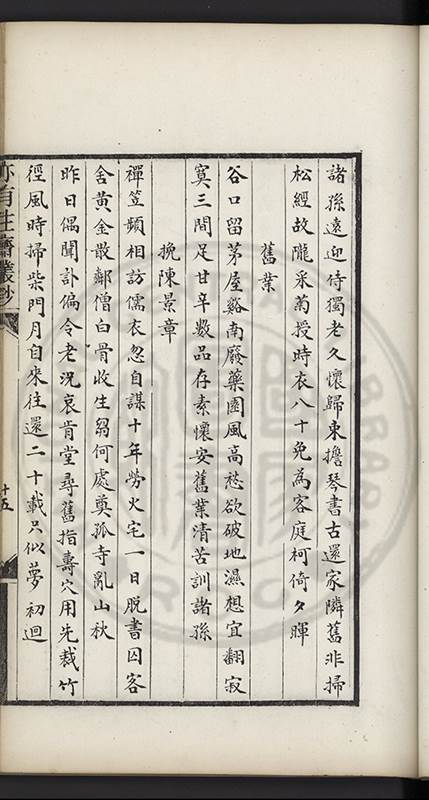 諸孫遠迎侍獨老久懷歸束擔琴書古還家隣舊非掃
松經故隴采菊授時衣八十免為客庭柯倚夕暉
舊業
谷口留茅屋谿南廢藥園風高愁欲破地濕想宜翻寂
寞三間足甘辛數品存素懷安舊業清苦訓諸孫
挽陳景章
禪笠頻相訪儒衣忽自謀十年勞火宅一日脫書囚客
舍黃金散鄰僧白骨收生芻何處奠孤寺亂山秋
昨日偶聞訃偏令老況哀肯堂尋舊指壽穴用先裁竹
徑風時掃柴門月自來往還二十載只似夢初迴
亦有生齋叢鈔
十五